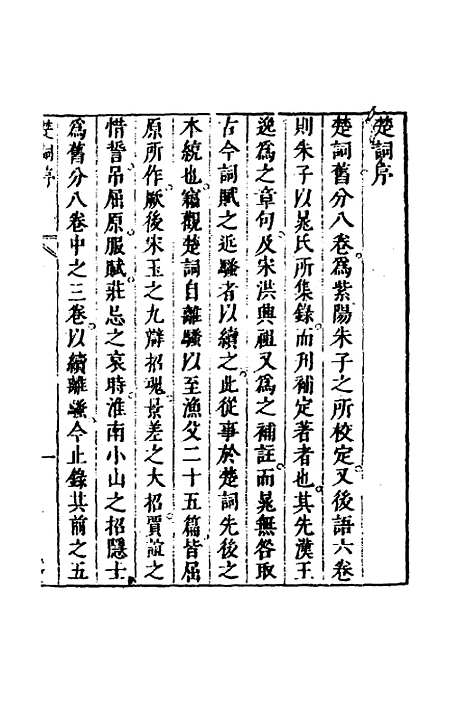 楚詞序
楚詞舊分八卷爲紫陽朱子之所校定又後語六卷
則朱子以晁氏所集錄而刋補定著者也其先漢王
逸爲之章句及宋洪興祖又爲之補註而晁無咎取
古今詞賦之近騷者以續之此從事於楚詞先後之
本統也竊觀楚詞自離騷以至漁父二十五篇皆屈
原所作厥後宋玉之九辯招魂景差之大招賈誼之
惜誓吊屈原服賦莊忌之哀時淮南小山之招隱士
爲舊分八卷中之三卷以續離騷今止錄其前之五
楚詞序
一